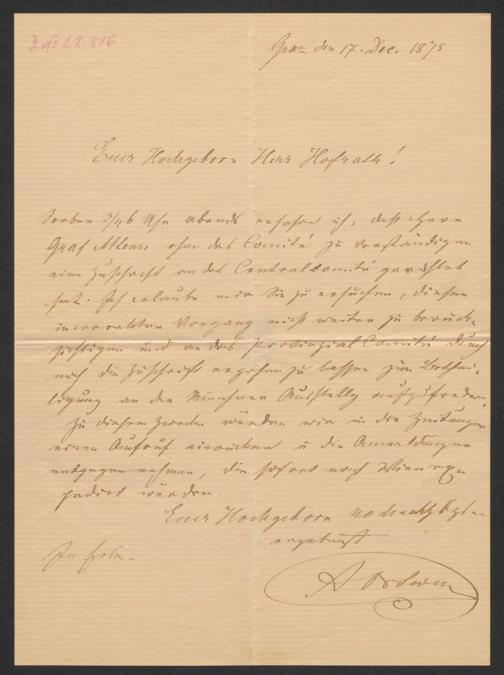 J. No 22.816
Graz den 17. Dec. 1875
Euer Hochgeborn Herr Hofrath!
Soeben 3/4 6 Uhr abends erfahre ich, daß Herr
Graf Attems ohne das Comité zu verständigen
eine Zuschrift an das Centralcomité gerichtet
hat. Ich erlaube mir Sie zu ersuchen, diesen
incorrekten Vorgang nicht weiter zu berück-
sichtigen und an das Provinzial Comité durch
mich die Zuschrift ergehen zu lassen zum Bethei-
ligung an der Münchner Ausstellg aufzufordern.
Zu diesem Zwecke würden wir in die Zeitungen
einen Aufruf einrücken u die Anmeldungen
entgegen nehmen, die sofort nach Wien expe-
dirt würden.
Euer Hochgeborn
ergebenst
In Eile.